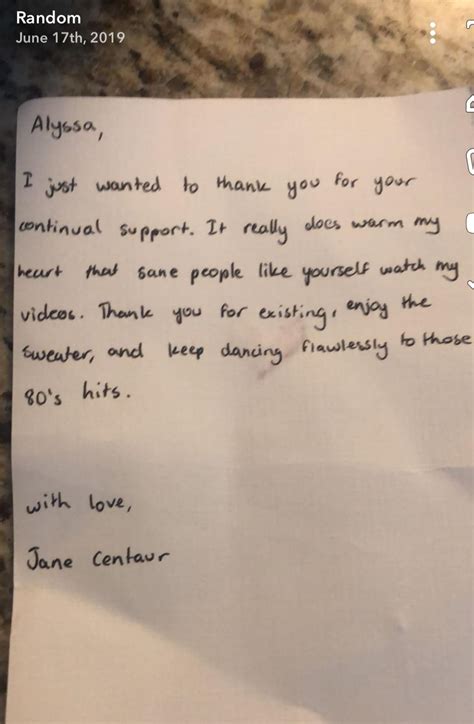 Random
June 17th, 2019
Alyssa,
I just wanted to thank you for your
continual support. It really does warm my
heart that sane people like yourself watch my
videos. Thank you for existing, enjoy the
sweater, and keep dancing flawlessly to those
80's hits.
with love,
Jane Centaur